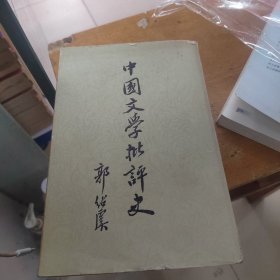 中國文學批評史
郭紹虞